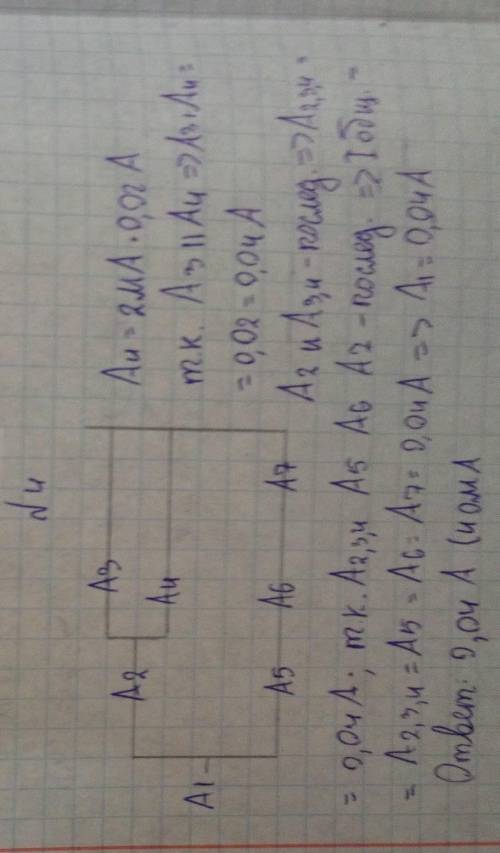 √4
A1
A2
A3
A4
A5 A6 A7
A4 = 2мА = 0,02 А
т.к. A3 || A4 => A3,A4 =
= 0,02 = 0,04 А
A2 и A3,4 - послед. => A2,3,4 =
= 0,04 А; т.к. A2,3,4 A5 A6 A7 - послед. => Iобщ. =
= A2,3,4 = A5 = A6 = A7 = 0,04 А => A1 = 0,04 А
Ответ: 0,04 А (40мА